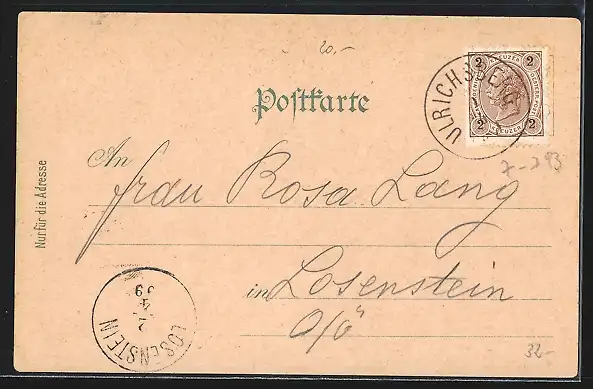 20,-
2 KREUZER 2
2 KREUZER 2
ULRICHSBERG
Postkarte
Nur für die Adresse
An
Frau Rosa Lang
in Losenstein
O/Ö
LOSENSTEIN
2 4 99
32.-